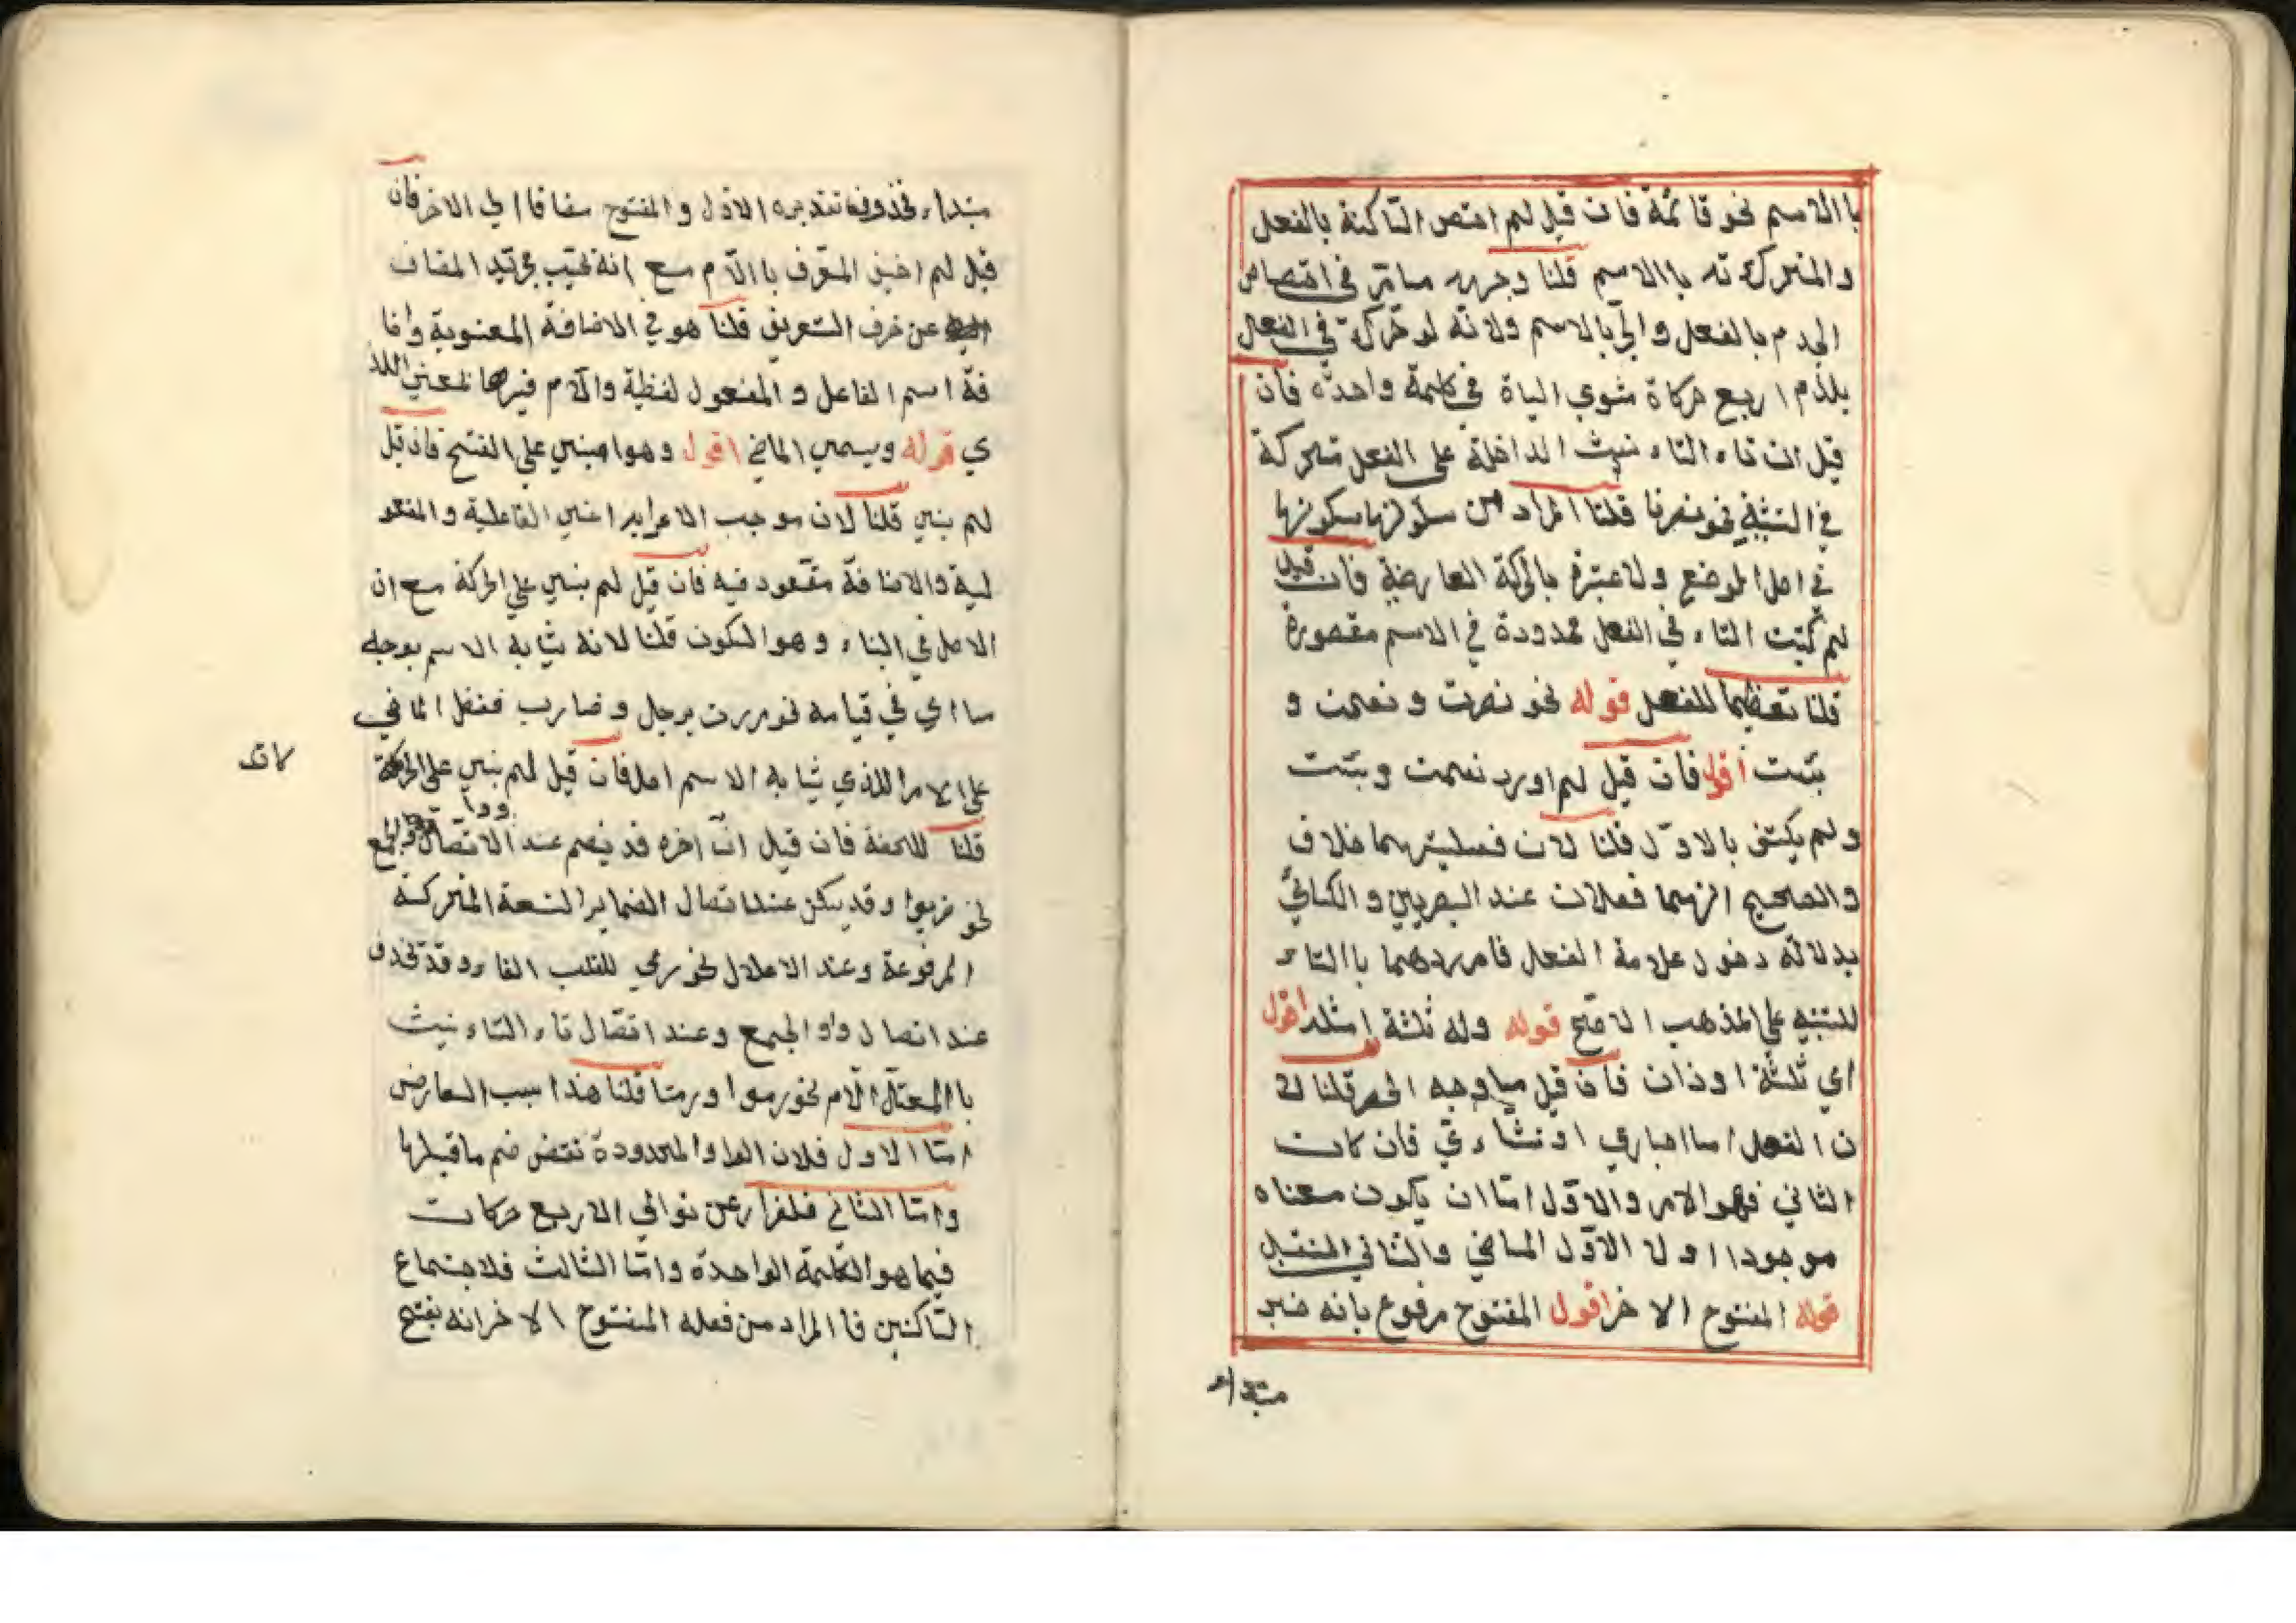 باالاسم نحو قائمة فان قيل لم اختص الساكنة بالفعل
والمتحركة ته باالاسم قلنا وجهه مامر في اختصاص
الجزم بالفعل والجر بالاسم ولانه لو حركة في الفعل
يلزم اربع حركاة شوي الياة في كلمة واحدة فان
قيل ان تاء التاء نيث الداخلة على الفعل متحركة
في التثنية نحو نصرتا قلنا المراد من سكونها سكونها
في اصل الموضع ولا عبرة بالحركة العارضة فان قيل
لم كتبت التاء في الفعل ممدودة في الاسم مقصورة
قلنا تعظيما للفعل قوله نحو نصرت و نعمت و
بئست اقول فان قيل لم اورد نعمت وبئست
ولم يكتف بالاول قلنا لان فعليتهما خلاف
والصحيح انهما فعلان عند البصريين و الكسائي
بدلالة دخول علامة الفعل فاوردهما باالتاء
للتنبيه على المذهب الاصح قوله وله ثلثة امثلة اقول
اي ثلثة اوزان فان قيل ماوجه الحصر قلنا لا
ن الفعل اما اخباري او نشاءي فان كان
الثاني فهو الامر والاول اما ان يكون معناه
موجودا اولا الاول الماضي والثاني المستقبل
قوله المفتوح الاخر اقول المفتوح مرفوع بانه خبر
مبتداء
مبتداء محذوف تقديره الاول والمفتوح مضافا الي الاخر فان
قيل لم اضيف المعرف باالام مع انه يجب تجريد المضاف
عن حرف التعريف قلنا هو في الاضافة المعنوية واضا
فة اسم الفاعل و المفعول لفظية والام فيها بمعني اللذ
ي قوله ويسمي الماضي اقول وهوا مبني علي الفتح فان قيل
لم بني قلنا لان موجب الاعراب اعني الفاعلية و المفعو
لية والاضافة مفقود فيه فان قيل لم بني علي الحركة مع ان
الاصل في البناء وهو السكون قلنا لانه يشابه الاسم بوجه
ما اي في قيامه نحو مررت برجل وضارب ففضل الماضي
على الامر اللذي يشابه الاسم اصلا فان قيل لم بني على الحركة
قلنا للخفة فان قيل ان اخره قد يضم عند الاتصال واو الجمع
نحو ضربوا وقد يسكن عند اتصال الضماير التسعة المتحركة
المرفوعة وعند الاعلال نحو رمي للقلب الفا وقد تحذف
عند اتصال واو الجمع وعند اتصال تاء التاء نيث
باالمعتل الام نحو رموا ورمتا قلنا هذا بسبب العارض
امتا الاول فلان الواو الممدودة تقتض ضم ماقبلها
وامتا الثاني فلفرار عن توالي الاربع حركات
فيما هو الكلمة الواحدة وامتا الثالث فلاجتماع
الساكنين فا المراد من فعله المفتوح الاخر انه يفتح